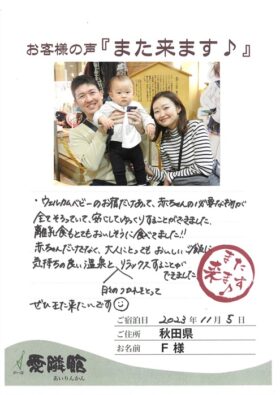 お客様の声『また来ます♪』
・ウェルカムベビーのお宿だけあって、赤ちゃんの必要な物が
全てそろっていて、安心してゆっくりすることができました。
離乳食もとてもおいしそうに食べてました!!
赤ちゃんだけでなく、大人にとっても おいしいご飯に
気持ちの良い温泉と、リラックスすることが
できました。
ぜひまた来たいです
また来ます♪
ご宿泊日 2023年11月5日
ご住所 秋田県
お名前 F 様
愛隣館
あいりんかん